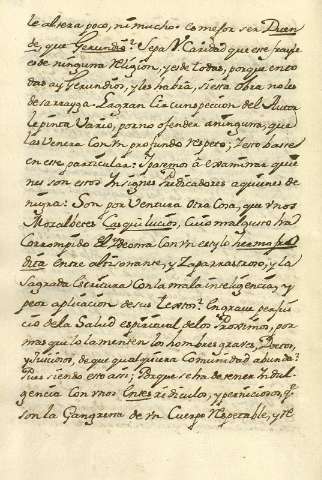 le absera poco, ni mucho: Como fer sea Duen
de, que Gerundio: Sepa V. Caridad que este frayle
es de ninguna Religion, y es de todas, porque en to
das ay Gerundios, y los habrá, si esta obra no les
desarrayga. La gran Circunspeccion del Autor
le pinta Vario, por no ofender a ninguna, que
las Venera Con Vn profundo respeto; Y esto baste
en este particular: Y pasemos à examinar quie
nes son estos Insignes Predicadores a quienes de
nigra: Son por Ventura otra Cosa, que Vnos
Mozalbetes Casquilucios, Cuio mal gusto ha
Corrompido el Ydioma Con Vn estylo hermafro
dita entre altisonante, y Zaparrastroso, y la
Sagrada Escritura Con la mala inteligencia, y
peor aplicacion de sus textos: En grave perjui
cio de la Salud espiritual de los Proximos, por
mas que lo lamenten los hombres graves, Doctos,
y Juiciosos, de que qualquiera Comunidad abunda:
Pues siendo esto asi; Porque se ha de tener Indul
gencia Con Vnos Entes ridiculos, y perniciosos, qe
son la Gangrena de Vn Cuerpo respetable, y re